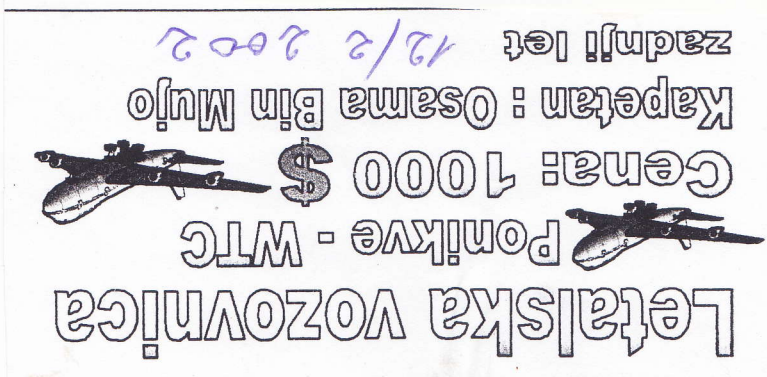 Letalska vozovnica
Ponikve - WTC
Cena: 1000 $
Kapetan : Osama Bin Mujo
zadnji let 12/2 2002